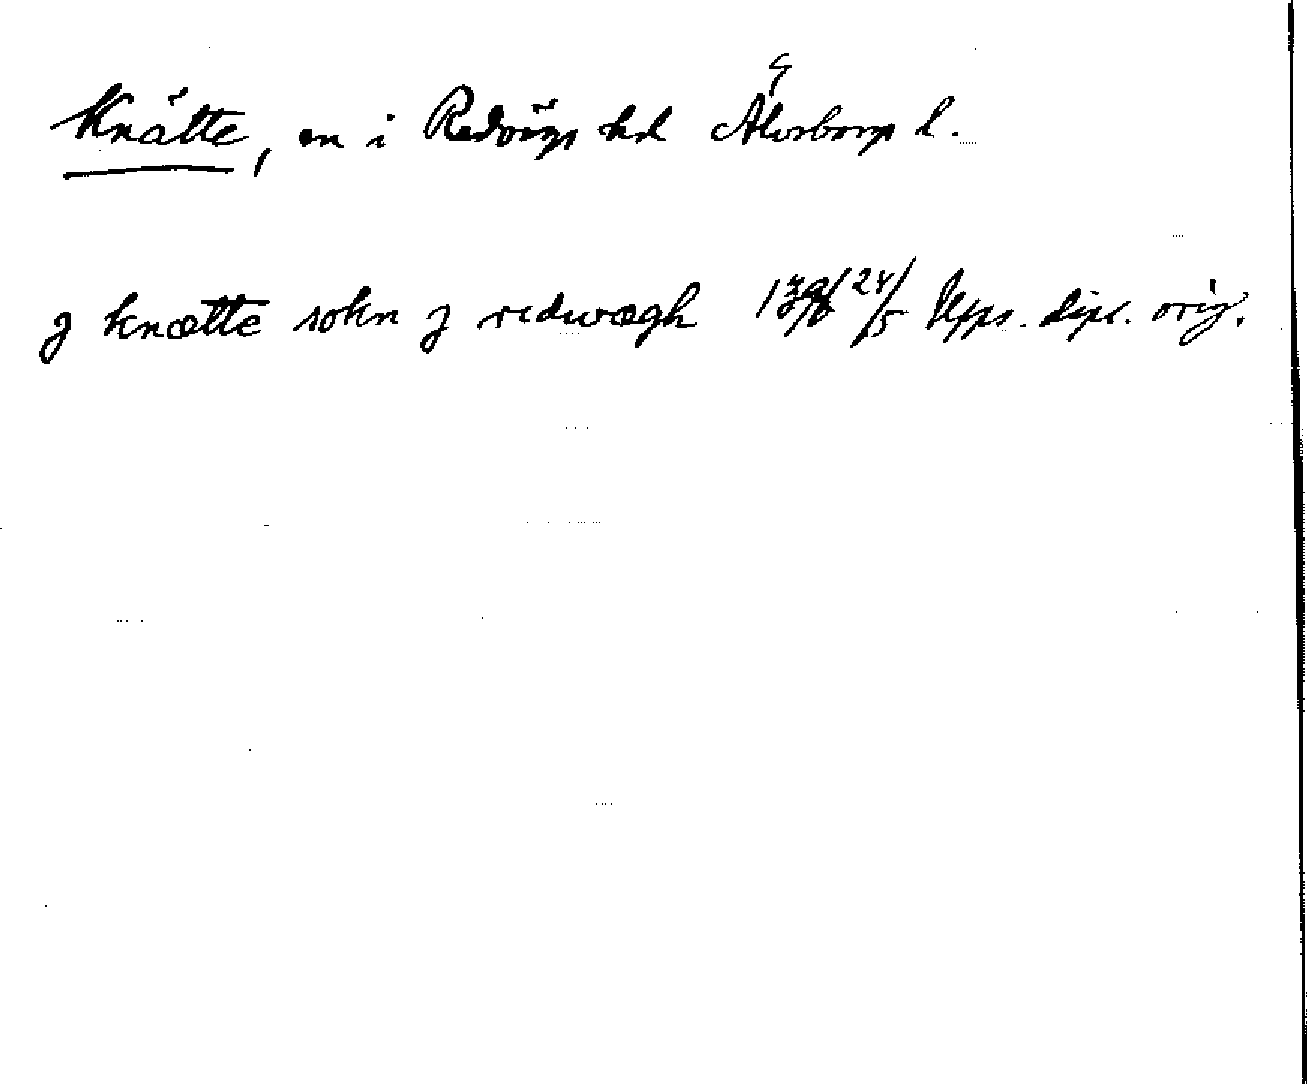 Knätte, sn i Redvägs hd Älvsborgs l.
J knætte sokn j redwægh 1396 24/5 Upps. dipl. orig.